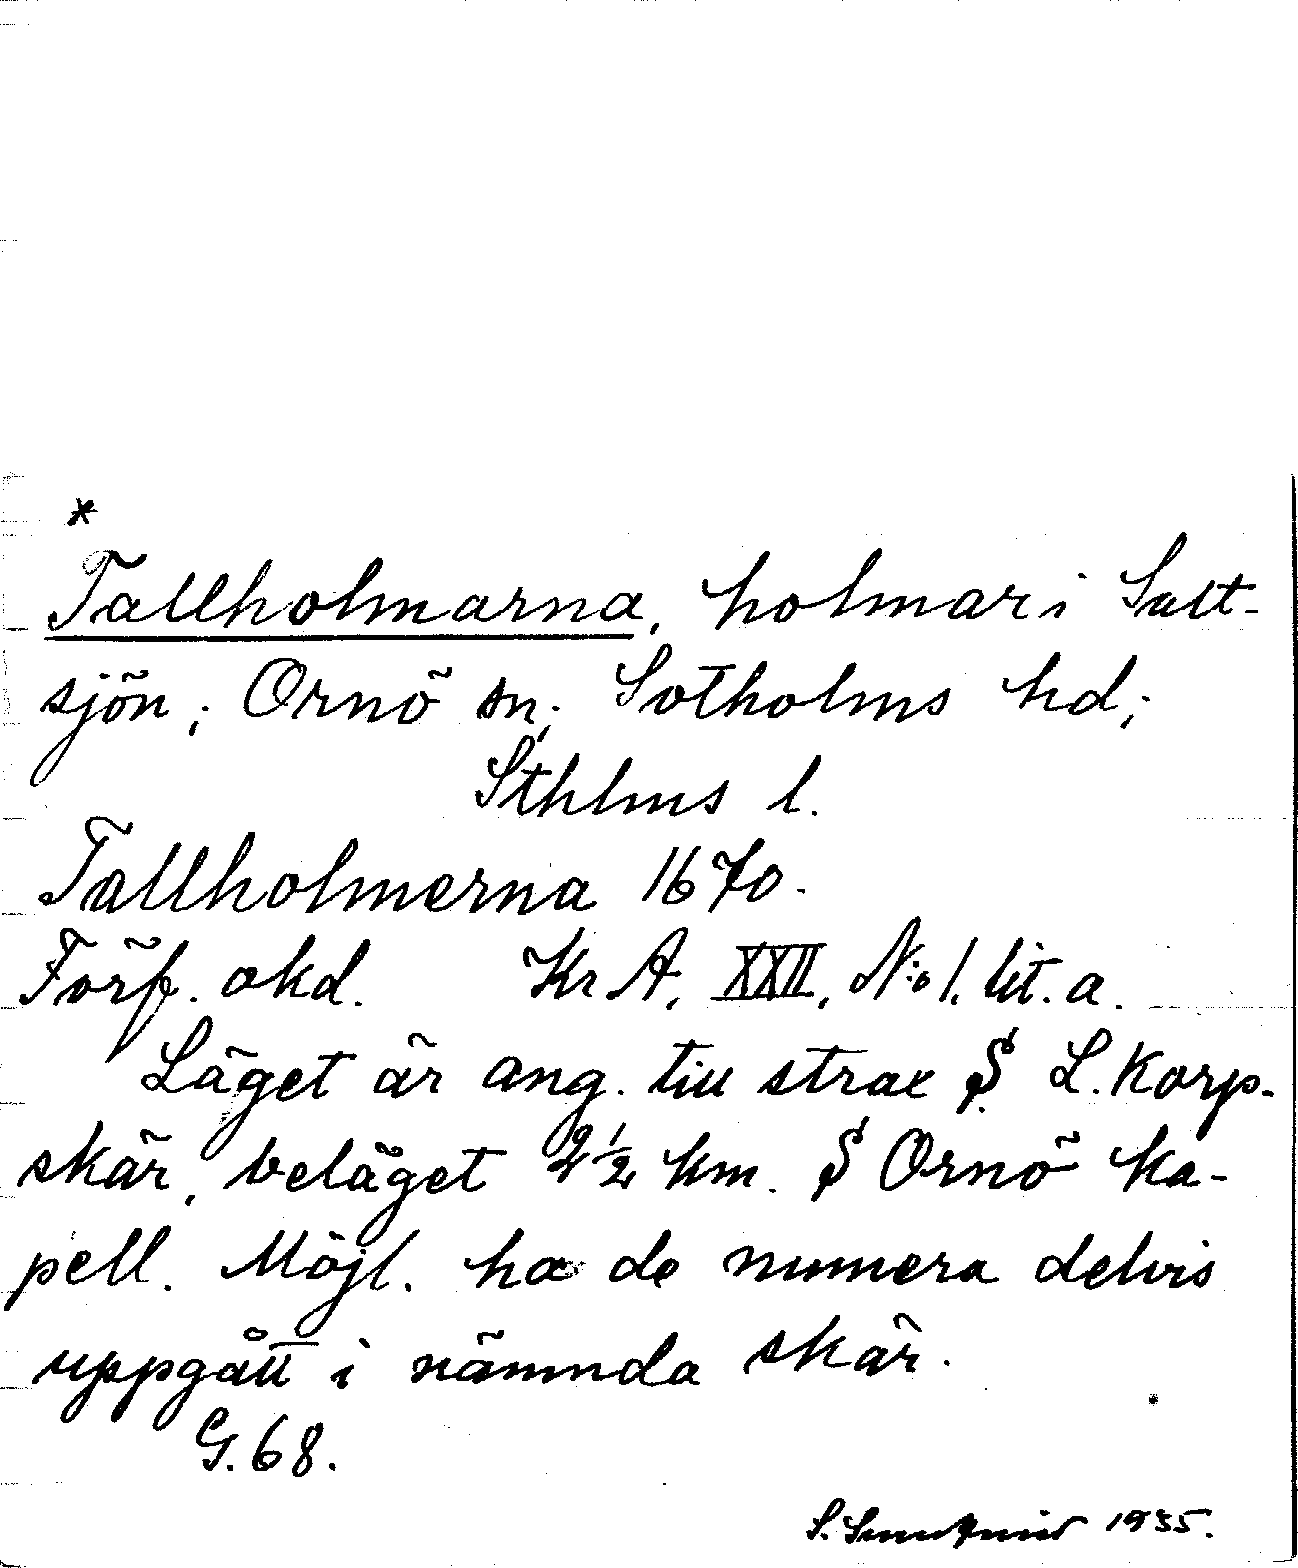 *
Tallholmarna, holmar i Salt-
sjön; Ornö sn; Sotholms hd;
Sthlms l.
Tallholmerna 1670.
Förf. okd. Kr A, XXII, N:o 1. lit. a.
Läget är ang. till strax S L. Korp-
skär, beläget 2 1/2 km. S Ornö ka-
pell. Möjl. ha de numera delvis
uppgått i nämnda skär.
G. 68.
S. 1935.